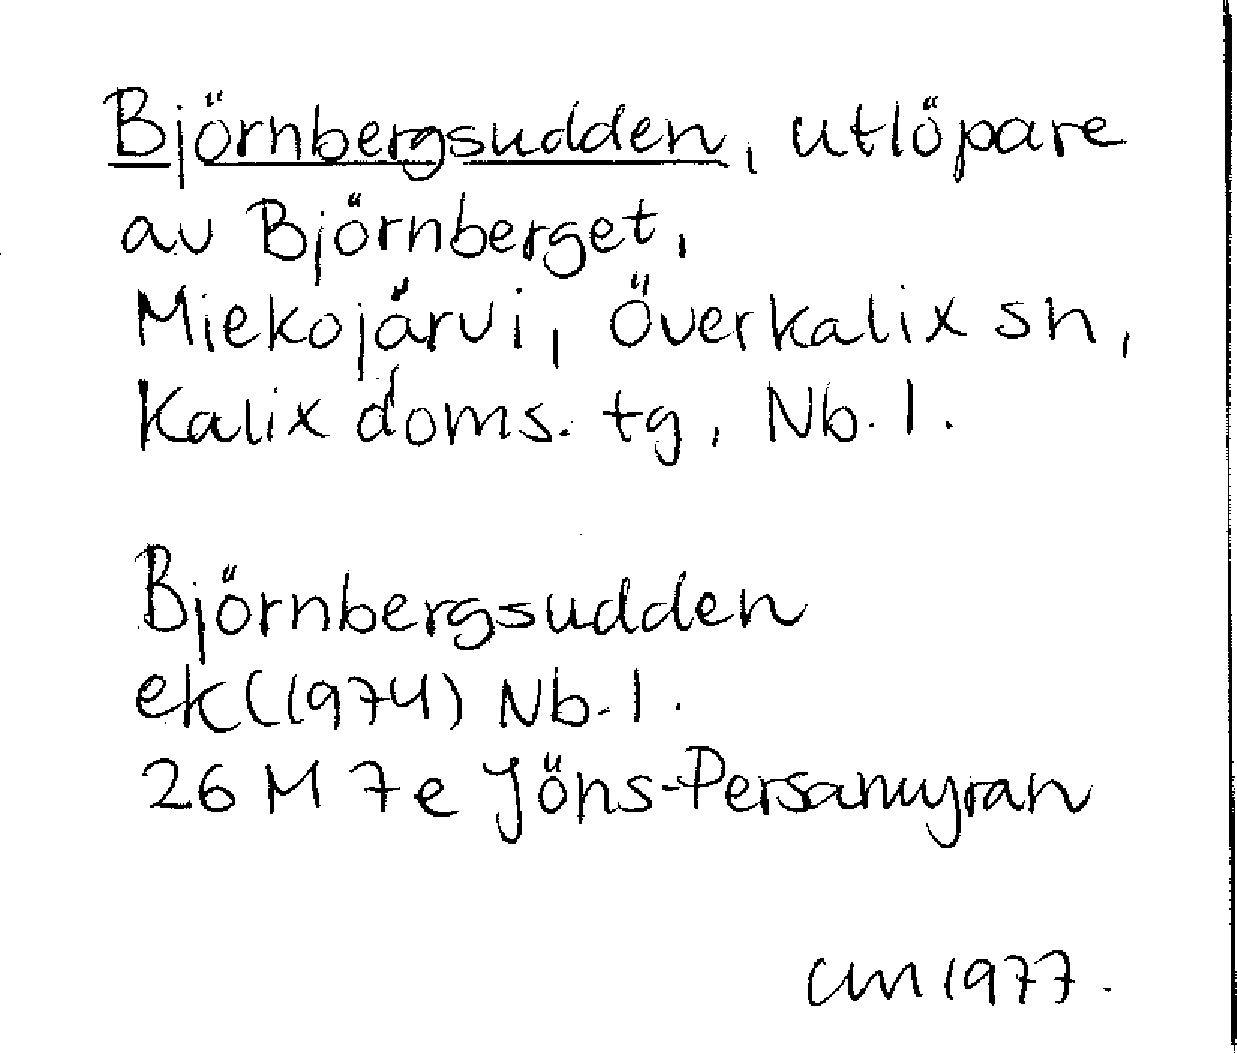 Björnbergsudden, utlöpare
av Björnberget,
Miekojärvi, Överkalix sn,
Kalix doms. tg, Nb. l.
Björnbergsudden
ek (1974) Nb. l.
26 M 7e Jöns-Persamyran
CM 1977.